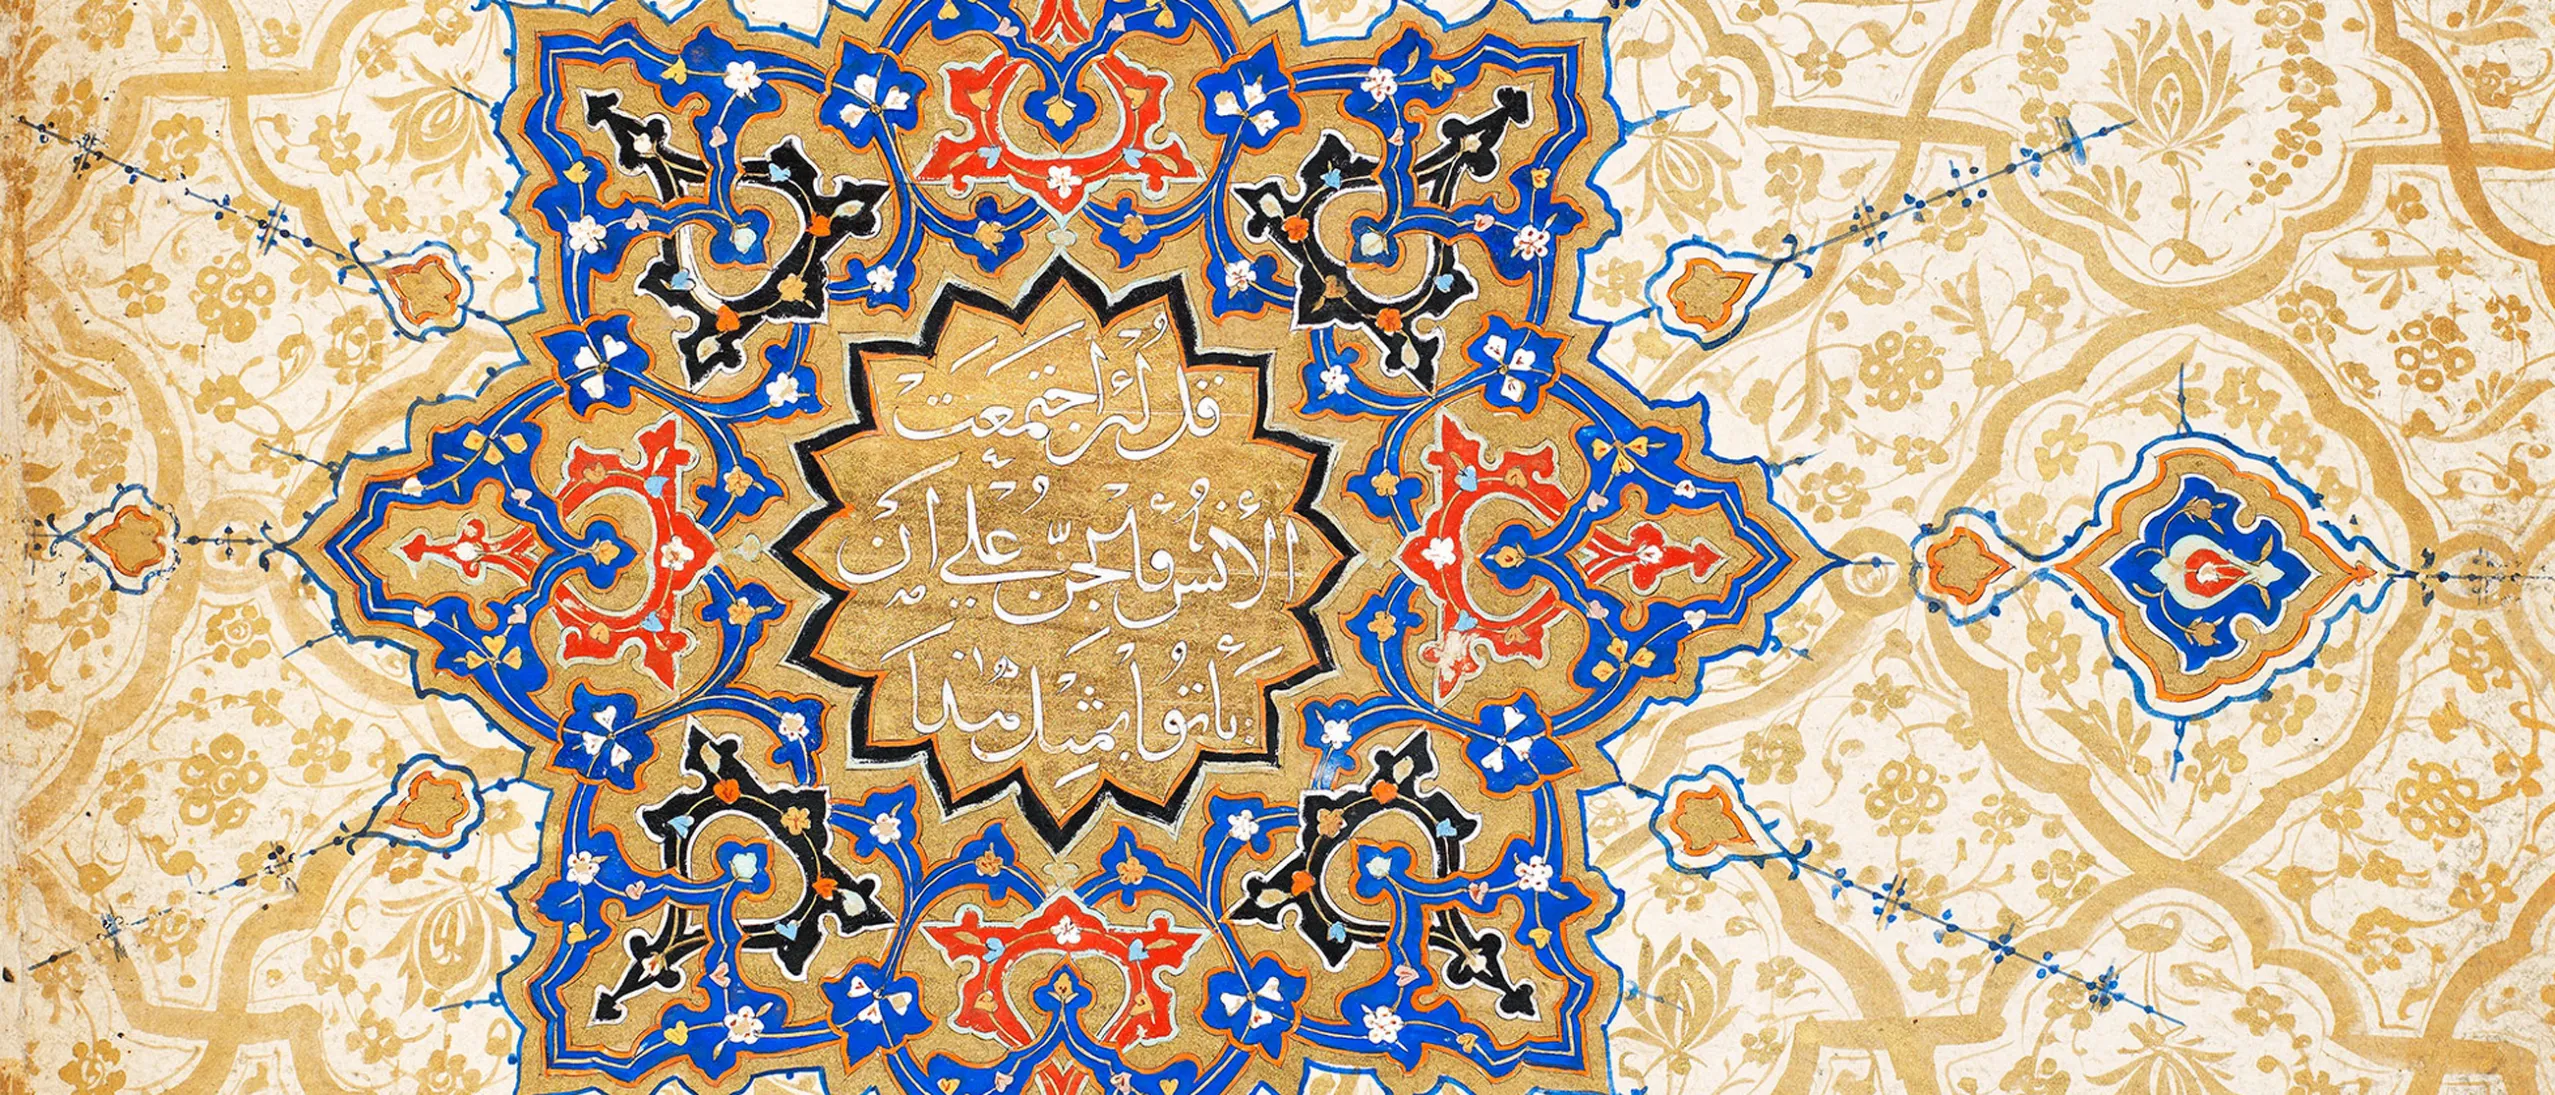 قل لئن اجتمعت
الانس والجن على ان
ياتوا بمثل هذا